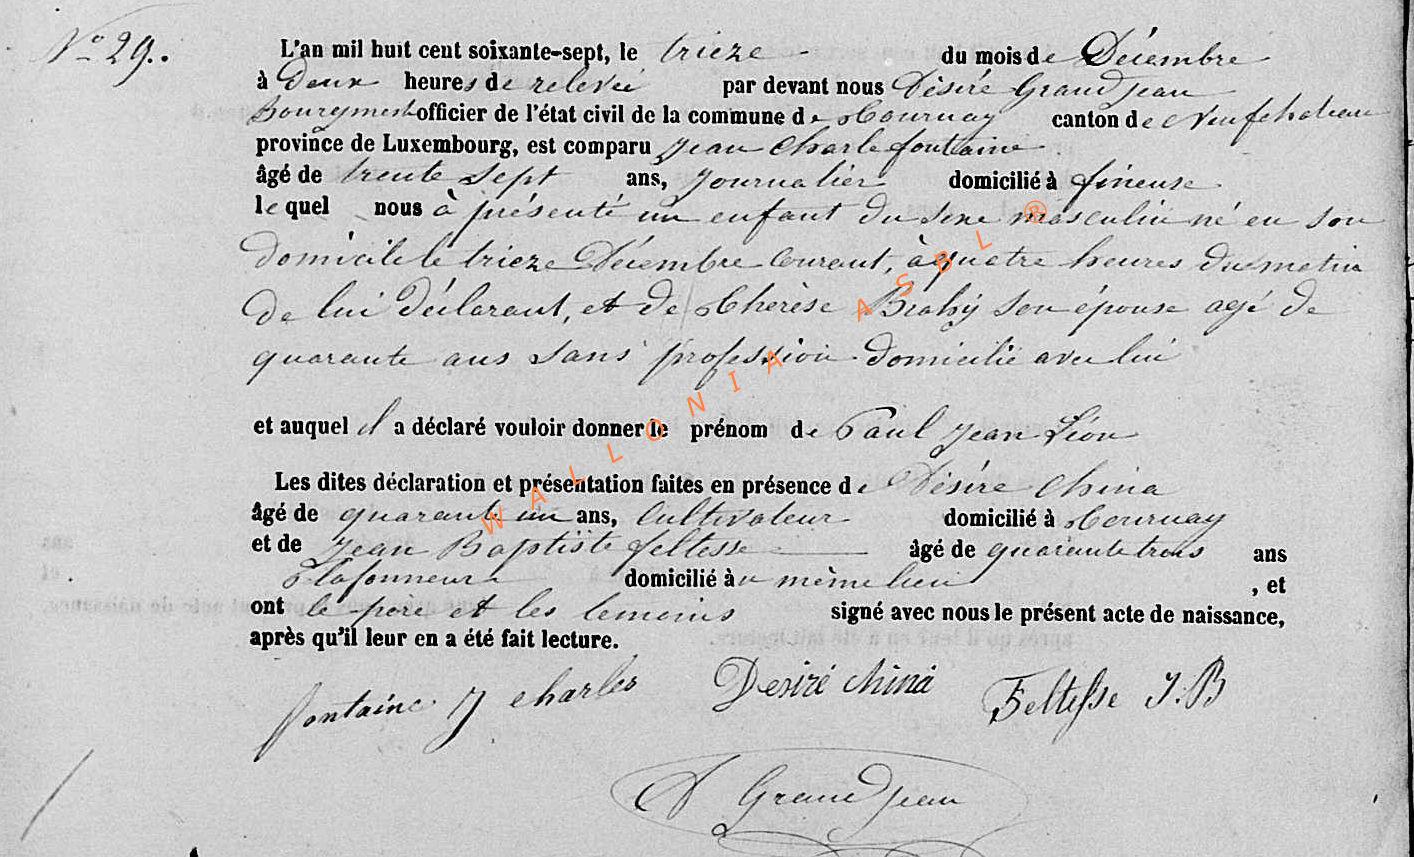 N° 29.
L'an mil huit cent soixante-sept, le trieze du mois de Décembre
à Deux heures de relevée par devant nous Désiré Grandjean
Bourgmest officier de l'état civil de la commune de Tournay canton de Neufchateau
province de Luxembourg, est comparu Jean Charle fontaine
âgé de trente sept ans, Journalier domicilié à fineuse
le quel nous à présenté un enfant du sexe masculin né en son
domicile le trieze Décembre Courant, à quatre heures du matin
de lui déclarant, et de Thérèse Brahy son épouse agé de
quarante ans sans profession domicilié avec lui
et auquel il a déclaré vouloir donner le prénom de Paul Jean Léon
Les dites déclaration et présentation faites en présence de Désiré China
âgé de quarante un ans, Cultivateur domicilié à Tournay
et de Jean Baptiste feltesse âgé de quarante trois ans
Plafonneur domicilié au même lieu , et
ont le père et les temoins signé avec nous le présent acte de naissance,
après qu'il leur en a été fait lecture.
fontaine J charles Desiré china Feltesse J.B
D Grandjean
WALLONIA ASBL ®